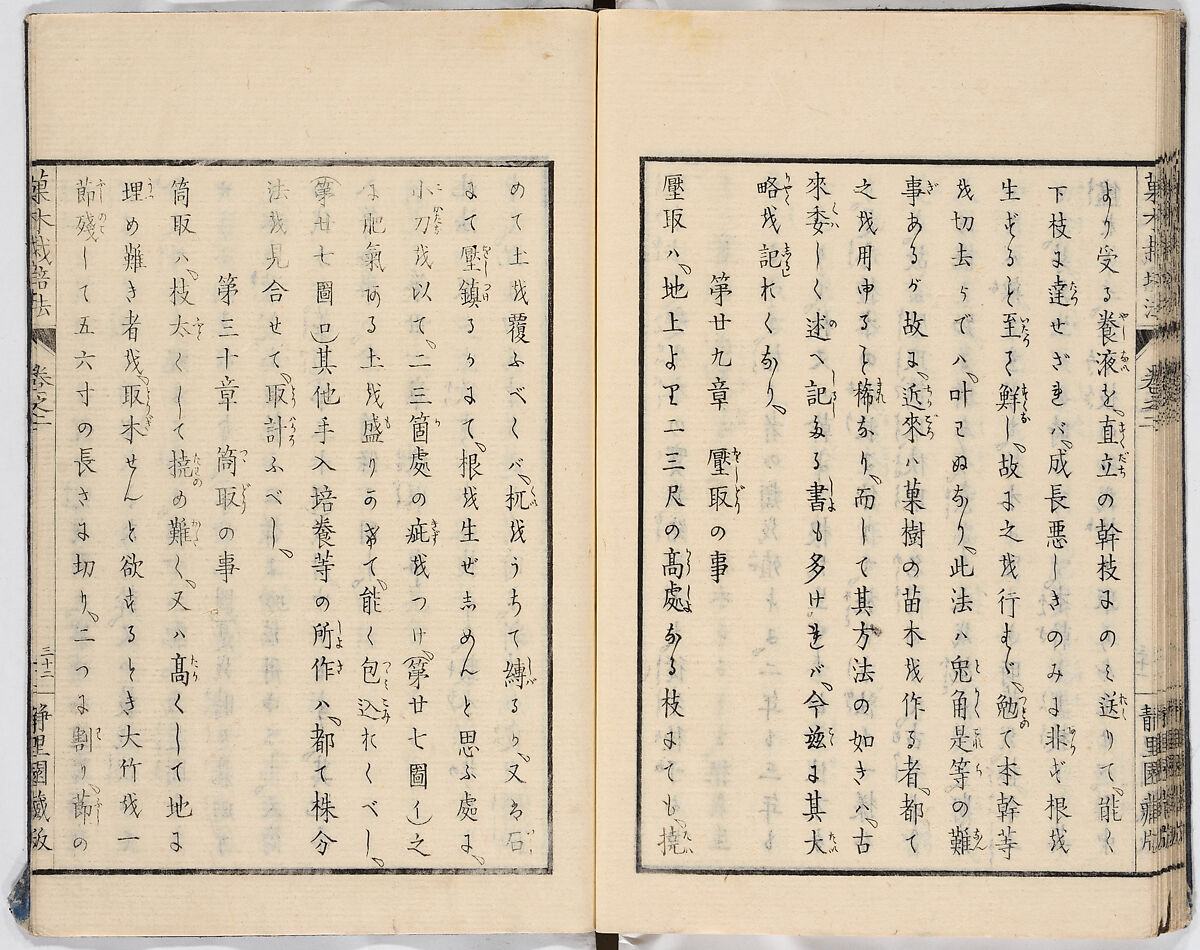 より受る養液を、直立の幹枝にのミ送りて、能く
下枝に達せざれバ、成長悪しきのみに非ず根を
生ずると至て鮮し、故に之を行まず、勉て本幹等
を切去らでハ、叶ハぬなり、此法ハ兎角是等の難
事あるが故に、近來ハ菓樹の苗木を作る者、都て
之を用ゆると稀なり、而して其方法の如きハ、古
來委しく述べ記たる書も多けれバ、今茲に其大
略を記れくなり、
第廿九章　壓取の事
壓取ハ、地上より二三尺の高處なる枝にても、撓
めて土を覆ふべくバ、杭をうちて縛るか、又ハ石
にて壓鎮るかにて、根を生ぜしめんと思ふ處に、
小刀を以て、二三箇處の疵をつけ、(第廿七圖イ)之
に肥氣ある土を盛りあげて、能く包込れくべし、
(第廿七圖ロ)其他手入培養等の所作ハ、都て株分
法を見合せて、取計ふべし、
第三十章　筒取の事
筒取ハ、枝太くして撓め難く、又ハ高くして地に
埋め難き者を、取木せんと欲するとき大竹を一
節殘して五六寸の長さに切り、二つに割り、節の
菓木栽培法
卷之一
三十二
静里園藏版